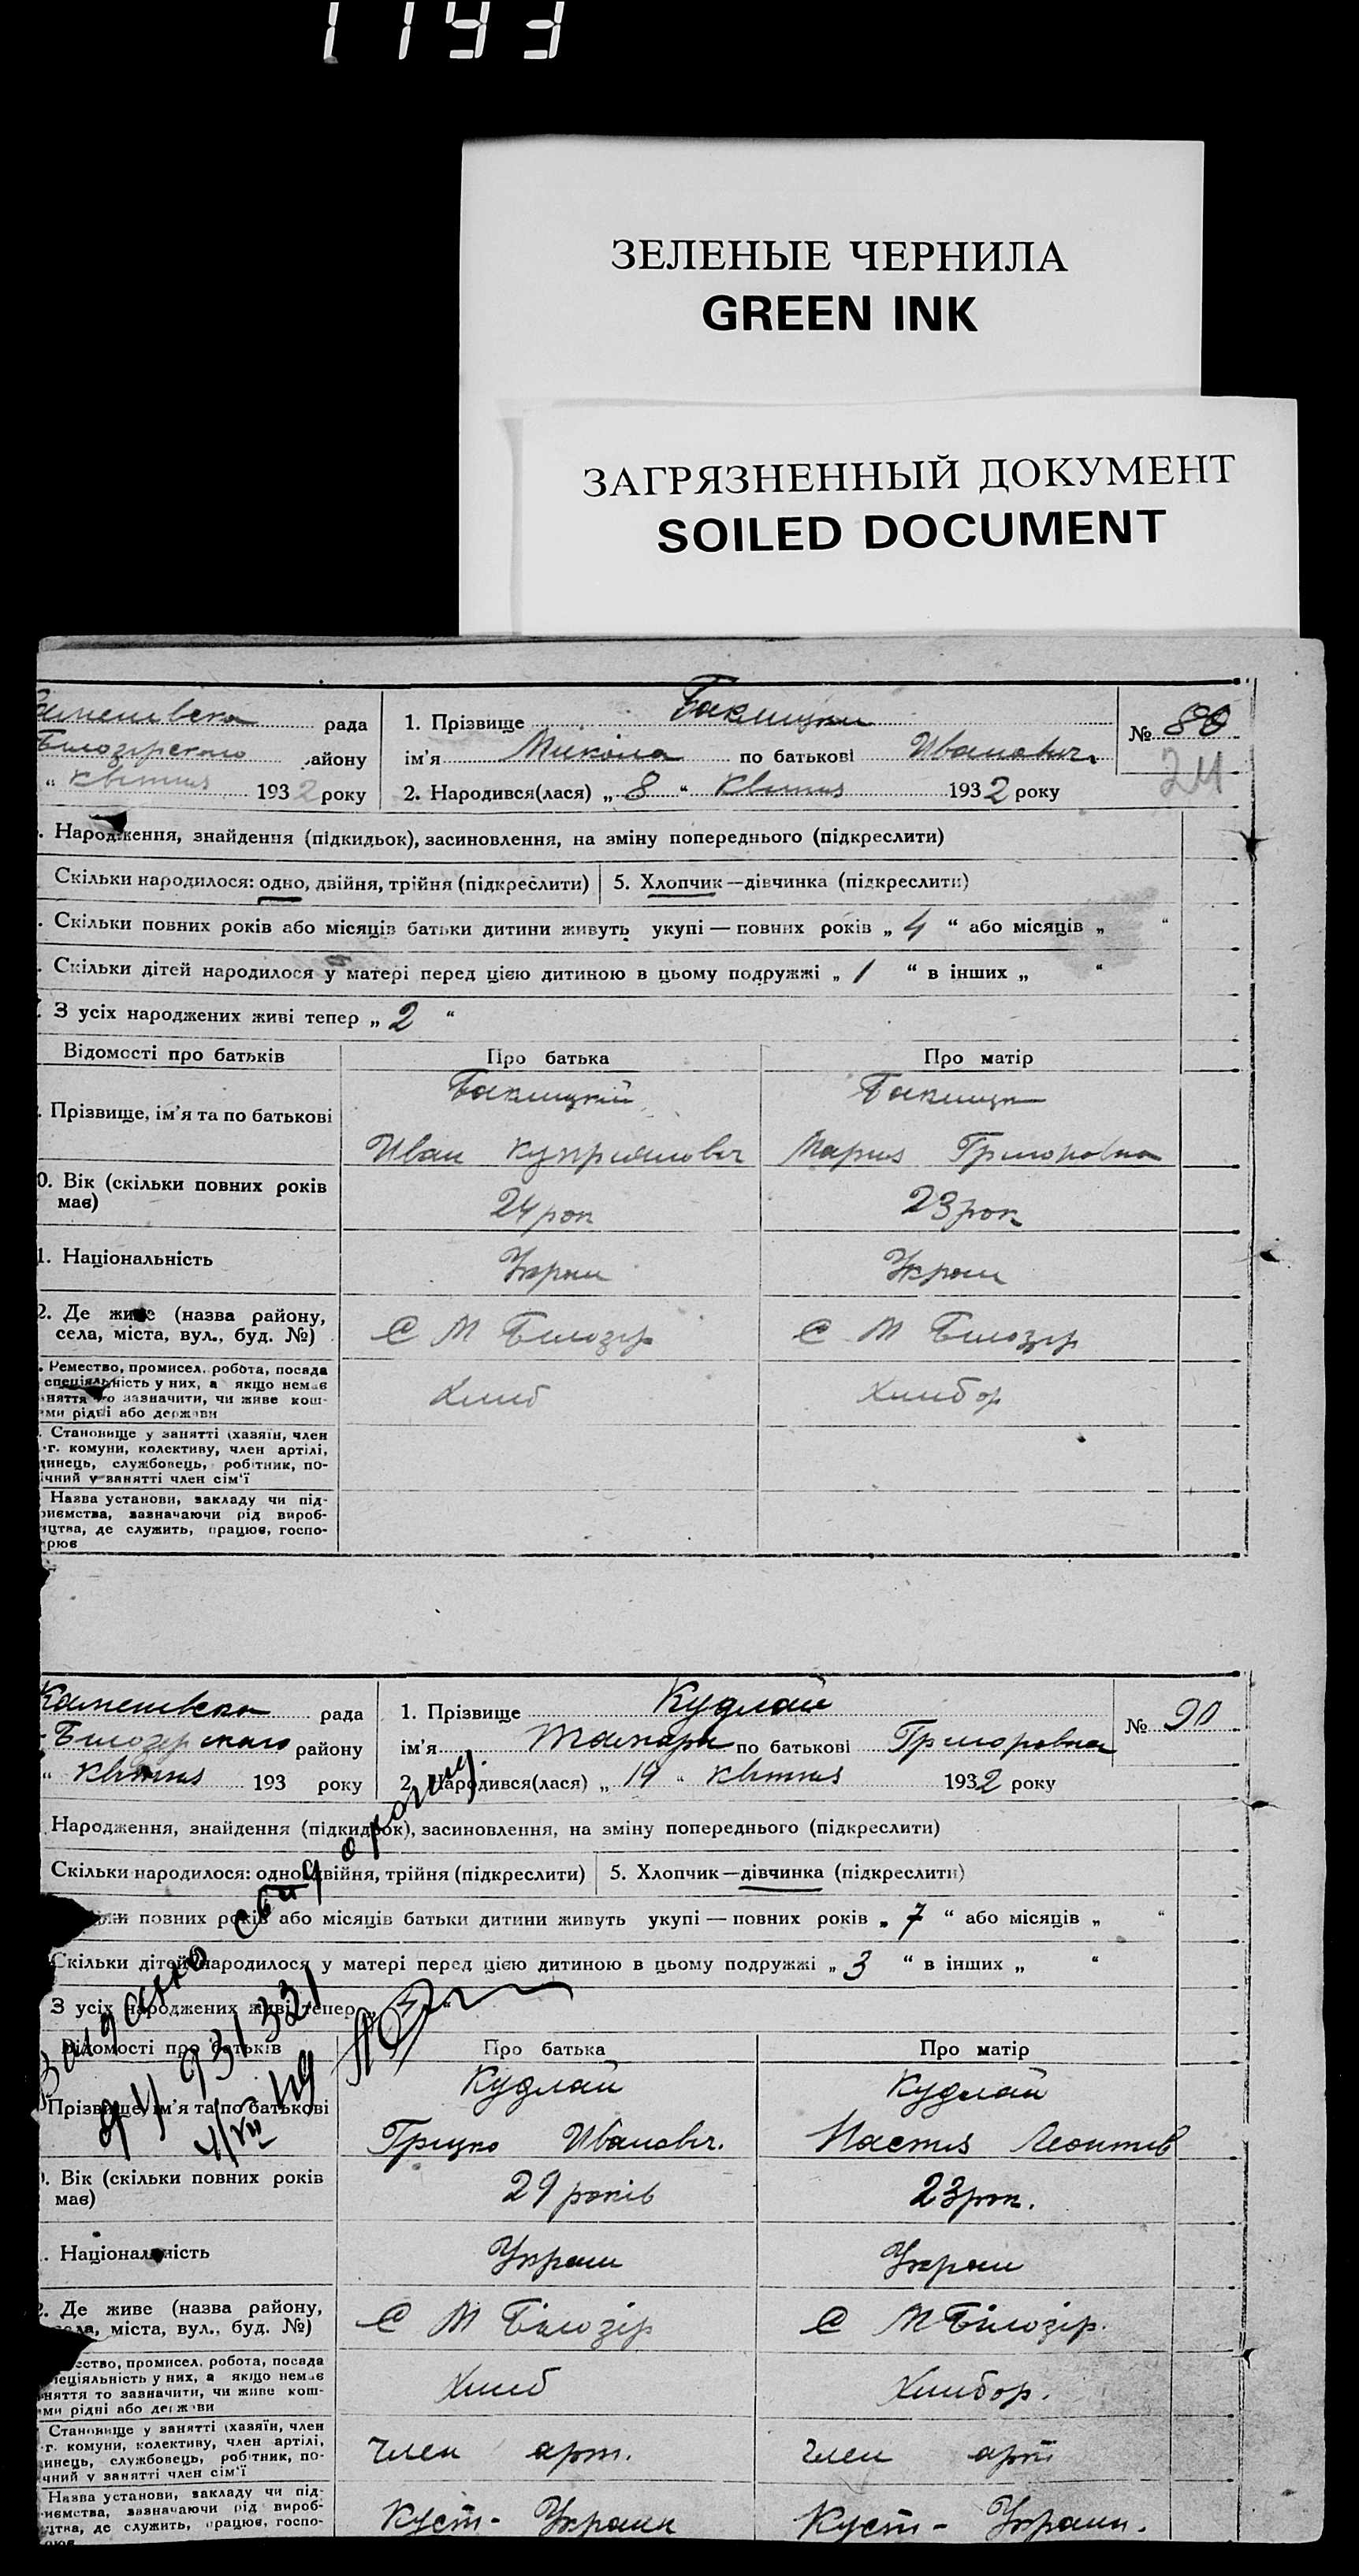 1193
ЗЕЛЕНЫЕ ЧЕРНИЛА
GREEN INK
ЗАГРЯЗНЕННЫЙ ДОКУМЕНТ
SOILED DOCUMENT
рада
Білозірського айону
" квітня 1932 року
1. Прізвище Бакницки
ім'я Микола по батькові Иванович
2. Народився(лася) „ 8 " квітня 1932 року
№ 80
24
Народження, знайдення (підкидьок), засиновлення, на зміну попереднього (підкреслити)
Скільки народилося: одно, двійня, трійня (підкреслити) 5. Хлопчик—дівчинка (підкреслити)
Скільки повних років або місяців батьки дитини живуть укупі — повних років „ 4 " або місяців „ "
Скільки дітей народилося у матері перед цією дитиною в цьому подружжі „ 1 " в інших „ "
З усіх народжених живі тепер „ 2 "
Відомості про батьків Про батька Про матір
Прізвище, ім'я та по батькові
Иван Куприянович Мария Григоровна
0. Вік (скільки повних років має) 24 рок 23 рок
1. Національність Украи Украи
2. Де живе (назва району,
села, міста, вул., буд. №) С М Білозір С М Білозір
Ремество, промисел, робота, посада
спеціяльність у них, а якщо немає
няття то зазначити, чи живе кош-
ми рідні або держави
Хліб Хлібор
Становище у занятті (хазяїн, член
-г. комуни, колективу, член артілі,
динець, службовець, робітник, по-
ічний у занятті член сім'ї
Назва установи, закладу чи під-
риємства, зазначаючи рід вироб-
ицтва, де служить, працює, госпо-
рює
рада
Білозірського району
" квітня 193 року
1. Прізвище Кудлай
ім'я Тамара по батькові Григоровна
2. Народився(лася) „ 14 " квітня 1932 року
№ 90
Народження, знайдення (підкидьок), засиновлення, на зміну попереднього (підкреслити)
Скільки народилося: одно, двійня, трійня (підкреслити) 5. Хлопчик—дівчинка (підкреслити)
повних років або місяців батьки дитини живуть укупі — повних років „ 7 " або місяців „ "
Скільки дітей народилося у матері перед цією дитиною в цьому подружжі „ 3 " в інших „ "
З усіх народжених живі тепер „
Відомості про батьків Про батька Про матір
Кудлай Кудлай
Прізвище, ім'я та по батькові
Грицко Иванович. Настия Леонтів
Вік (скільки повних років
має) 29 років 23 рок.
Національність Украи Украи
Де живе (назва району,
села, міста, вул., буд. №) С М Білозір С М Білозір.
ество, промисел, робота, посада
пеціяльність у них, а якщо немає
няття то зазначити, чи живе кош-
ми рідні або держави
Хліб Хлібор.
Становище у занятті (хазяїн, член
-г. комуни, колективу, член артілі,
инець, службовець, робітник, по-
чний у занятті член сім'ї
член арт. член арт
Назва установи, закладу чи під-
иємства, зазначаючи рід вироб-
цтва, де служить, працює, госпо-
Куст- Украин Куст- Украин.